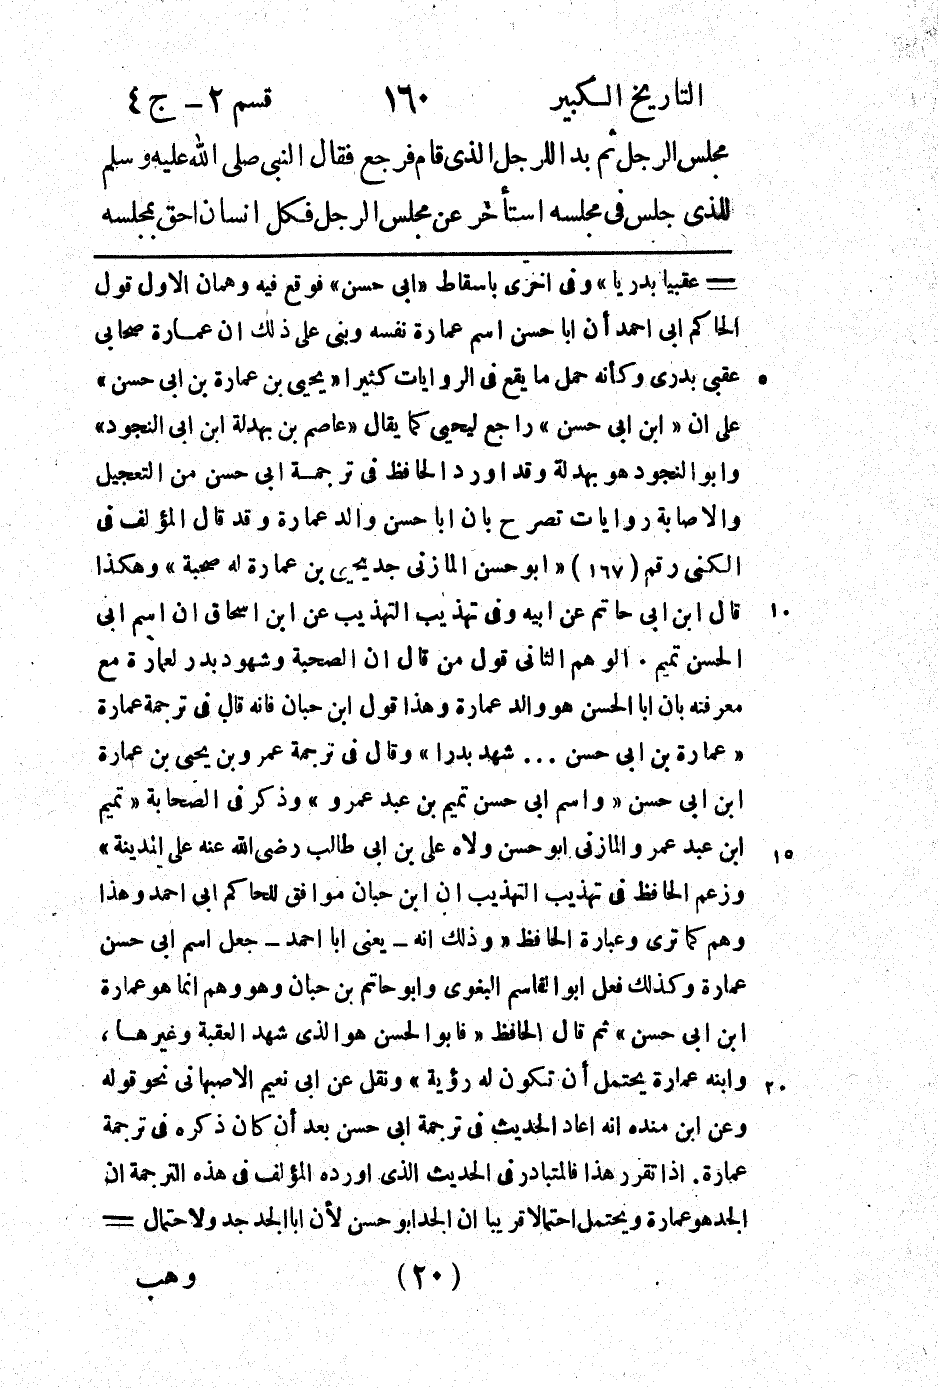 التاريخ الكبير ١٦٠ قسم ٢ - ج ٤
مجلس الرجل ثم بدا للرجل الذى قام فرجع فقال النبى صلى الله عليه وسلم
للذى جلس فى مجلسه استأخر عن مجلس الرجل فكل انسان احق بمجلسه
= عقبيا بدريا » وفى اخرى باسقاط «ابى حسن» فوقع فيه وهمان الاول قول
الحاكم ابى احمد أن ابا حسن اسم عمارة نفسه وبنى على ذلك ان عمارة صحابى
عقبى بدرى وكأنه حمل ما يقع فى الروايات كثيرا « يحيى بن عمارة بن ابى حسن » ٥
على ان « ابن ابى حسن » راجع ليحيى كما يقال «عاصم بن بهدلة ابن ابى النجود»
وابو النجود هو بهدلة وقد اورد الحافظ فى ترجمة ابى حسن من التعجيل
والاصابة روايات تصرح بان ابا حسن والد عمارة وقد قال المؤلف فى
الكنى رقم (١٦٧) « ابو حسن المازنى جد يحيى بن عمارة له صحبة » وهكذا
قال ابن ابى حاتم عن ابيه وفى تهذيب التهذيب عن ابن اسحاق ان اسم ابى ١٠
الحسن تميم . الوهم الثانى قول من قال ان الصحبة وشهود بدر لعمارة مع
معرفته بان ابا الحسن هو والد عمارة وهذا قول ابن حبان فانه قال فى ترجمة عمارة
« عمارة بن ابى حسن ... شهد بدرا » وقال فى ترجمة عمرو بن يحيى بن عمارة
ابن ابى حسن « واسم ابى حسن تميم بن عبد عمرو » وذكر فى الصحابة « تميم
ابن عبد عمرو المازنى ابو حسن ولاه على بن ابى طالب رضى الله عنه على المدينة » ١٥
وزعم الحافظ فى تهذيب التهذيب ان ابن حبان موافق للحاكم ابى احمد وهذا
وهم كما ترى وعبارة الحافظ « وذلك انه - يعنى ابا احمد - جعل اسم ابى حسن
عمارة وكذلك فعل ابو القاسم البغوى وابو حاتم بن حبان وهو وهم انما هو عمارة
ابن ابى حسن » ثم قال الحافظ « فابو الحسن هو الذى شهد العقبة وغيرها ،
وابنه عمارة يحتمل أن تكون له رؤية » ونقل عن ابى نعيم الاصبهانى نحو قوله ٢٠
وعن ابن منده انه اعاد الحديث فى ترجمة ابى حسن بعد أن كان ذكره فى ترجمة
عمارة . اذا تقرر هذا فالمتبادر فى الحديث الذى اورده المؤلف فى هذه الترجمة ان
الجد هو عمارة ويحتمل احتمالا قريبا ان الجد ابو حسن لأن ابا الجد جد ولاحتمال =
(٢٠) وهب